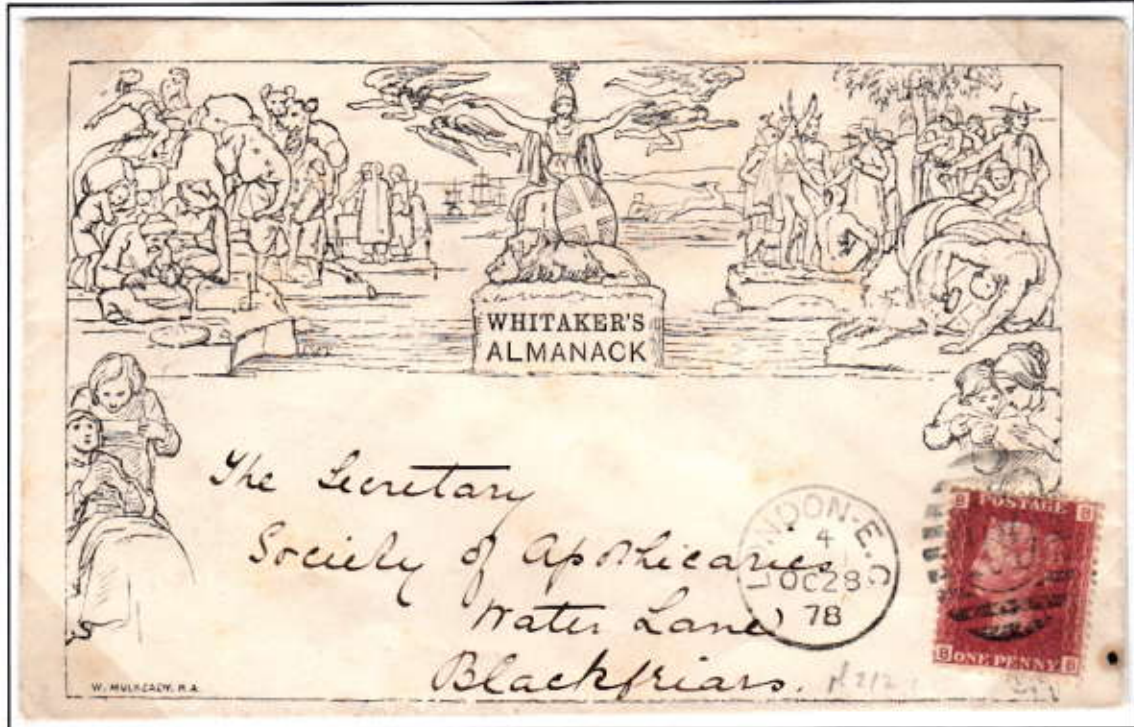 WHITAKER'S
ALMANACK
The Secretary
Society of Apothicaries
Water Lane
Blackfriars.
LONDON-E.C
4
OC28
78
B POSTAGE B
B ONE PENNY B
W. MULREADY. R.A.
pl 212